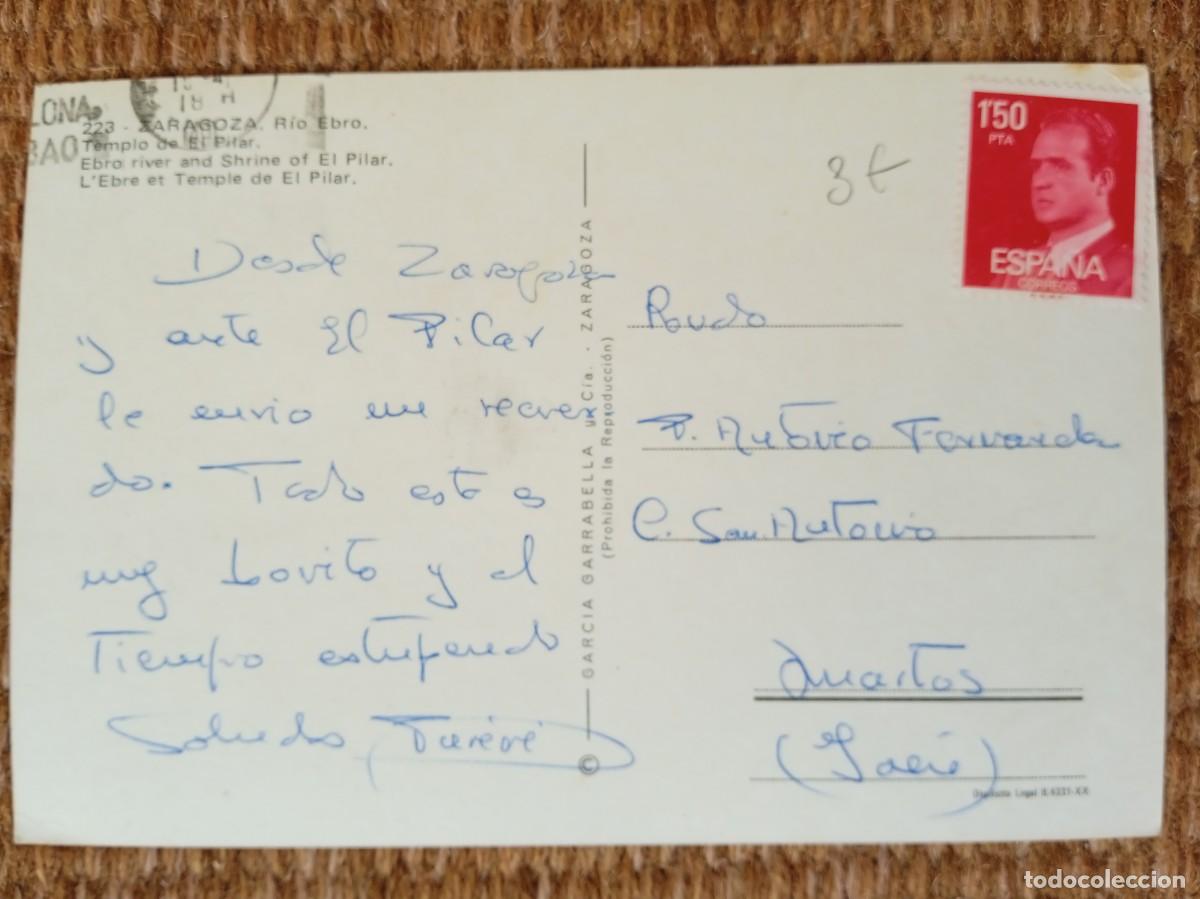 LONA
BAO
18 H
223 - ZARAGOZA. Río Ebro.
Templo de El Pilar.
Ebro river and Shrine of El Pilar.
L'Ebre et Temple de El Pilar.
Desde Zaragoza
y ante El Pilar
le envio un recuer
do. Todo esto es
muy bonito y el
Tiempo estupendo
Saludos
GARCIA GARRABELLA y Cía. - ZARAGOZA
(Prohibida la Reproducción)
©
1'50
PTA
ESPAÑA
CORREOS
3€
Rvudo
P. Antonio Fernandez
C. San Antonio
Martos
(Jaén)
Depósito Legal B.6331-XX
todocoleccion